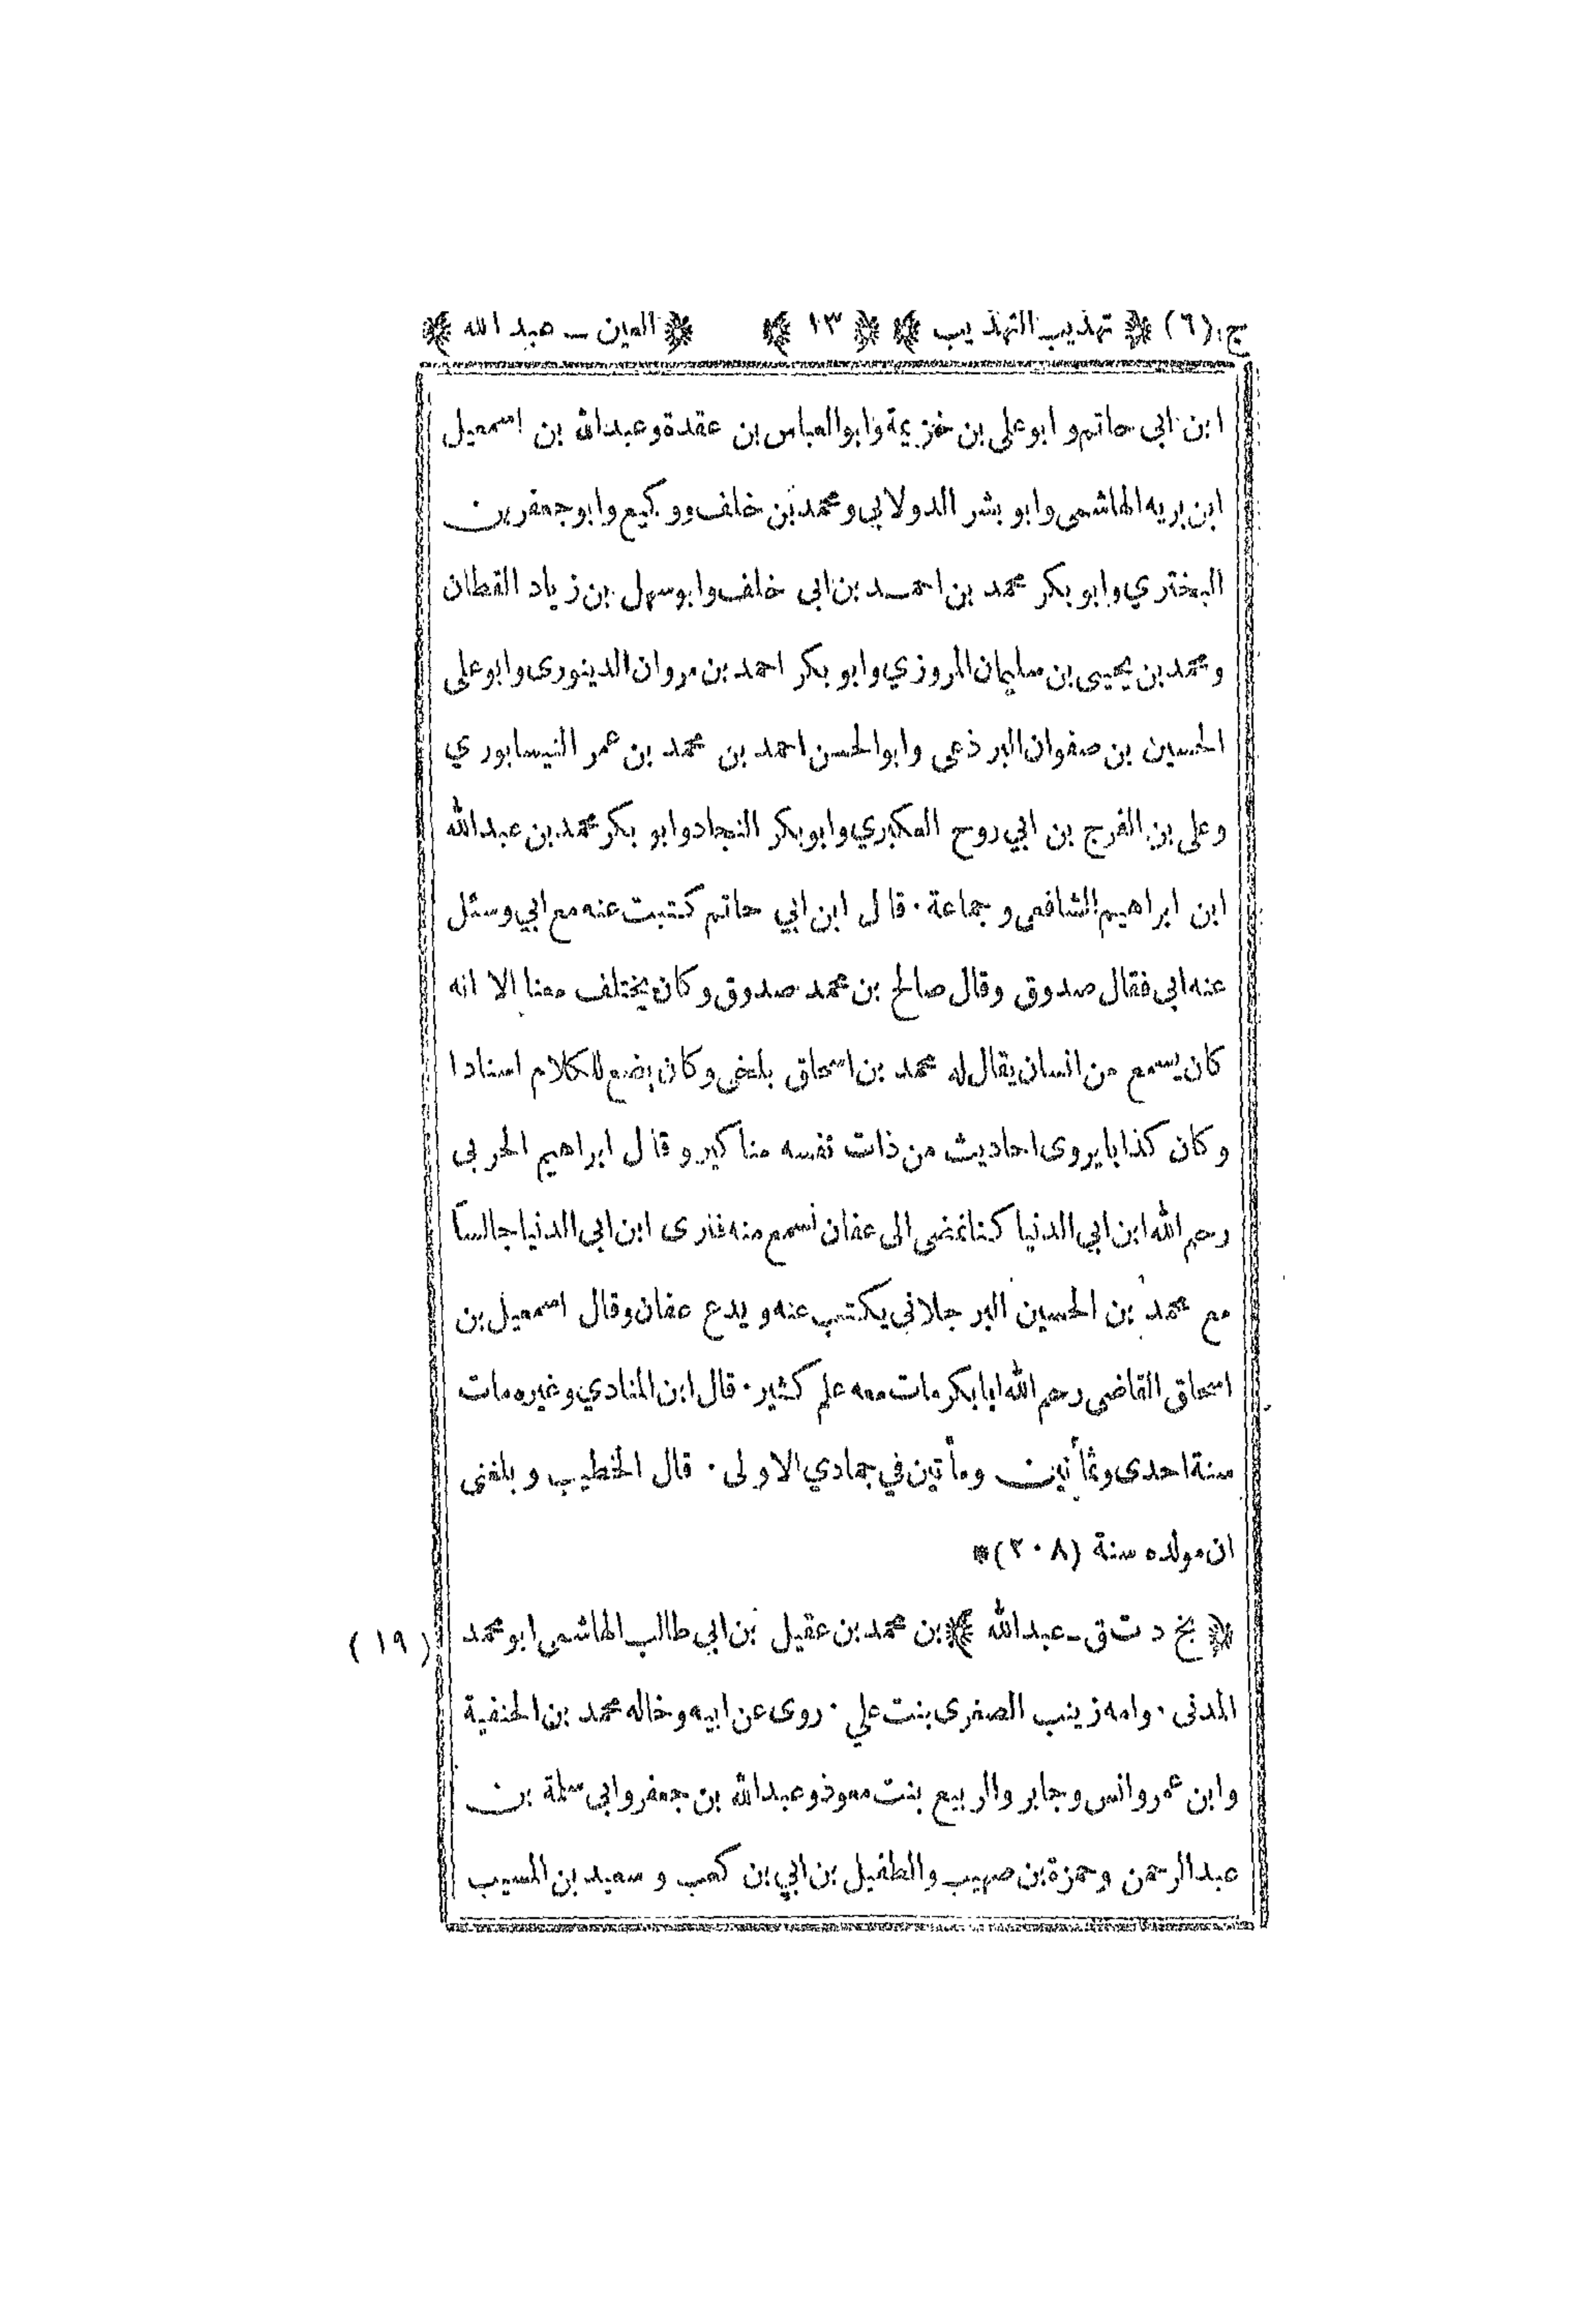 ج (٦) ﴿ تهذيب التهذيب ﴾ ﴿ ١٣ ﴾ ﴿ العين ـ عبد الله ﴾
ابن ابي حاتم و ابو على بن خزيمة و ابو العباس بن عقدة و عبد الله بن اسمعيل
ابن بريه الهاشمى و ابو بشر الدولابي و محمد بن خلف و وكيع و ابو جعفر بن
البختري و ابو بكر محمد بن احمد بن ابى خلف و ابو سهل بن زياد القطان
و محمد بن يحيى بن سليمان المروزي و ابو بكر احمد بن مروان الدينورى و ابو على
الحسين بن صفوان البرذعى و ابو الحسن احمد بن محمد بن عمر النيسابوري
و على بن الفرج بن ابي روح العكبري و ابو بكر النجاد و ابو بكر محمد بن عبد الله
ابن ابراهيم الشافعى و جماعة ٠ قال ابن ابي حاتم كتبت عنه مع ابي و سئل
عنه ابى فقال صدوق وقال صالح بن محمد صدوق و كان يختلف معنا الا انه
كان يسمع من انسان يقال له محمد بن اسحاق بلخى و كان يضع للكلام اسنادا
و كان كذابا يروى احاديث من ذات نفسه مناكير و قال ابراهيم الحربى
رحم الله ابن ابي الدنيا كنا نمضى الى عفان نسمع منه فنرى ابن ابى الدنيا جالساً
مع محمد بن الحسين البرجلانى يكتب عنه و يدع عفان و قال اسمعيل بن
اسحاق القاضى رحم الله ابا بكر مات معه علم كثير ٠ قال ابن المنادي و غيره مات
سنة احدى و ثمانين و مأتين في جمادي الاولى ٠ قال الخطيب و بلغنى
ان مولده سنة (٢٠٨)*
﴿ بخ د ت ق ـ عبد الله ﴾ بن محمد بن عقيل بن ابي طالب الهاشمى ابو محمد (١٩)
المدنى ٠ و امه زينب الصغرى بنت علي ٠ روى عن ابيه و خاله محمد بن الحنفية
و ابن عمر و انس و جابر و الربيع بنت معوذ و عبد الله بن جعفر و ابي سلمة بن
عبد الرحمن و حمزة بن صهيب و الطفيل بن ابي بن كعب و سعيد بن المسيب